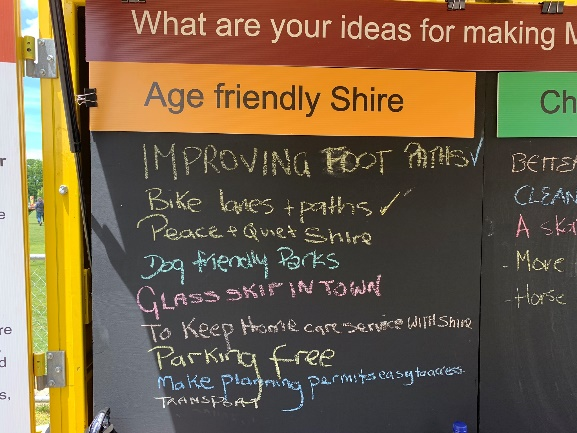 What are your ideas for making M
Age friendly Shire
IMPROVING FOOT PATHS ✓
Bike lanes + paths ✓
Peace + Quiet Shire
Dog friendly Parks
GLASS SKIP IN TOWN
To Keep Home care service WITH Shire
Parking free
Make planning permits easy to access
TRANSPORT
Ch
BETTER
CLEAN
A ska
- More
- Horse